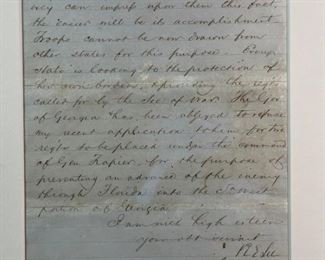 they can impress upon them this fact,
the easier will be its accomplishment
Troops cannot be now drawn from
other states for this purpose. Every
State is looking to the protection of
her own borders, & providing the regts
called for by the Sec of War. The Gov
of Georgia has been obliged to refuse
my recent application to him for two
regts to be placed under the command
of Gen for the purpose of
preventing an advance of the enemy
through Florida into the
portion of Georgia
I am with high esteem
your obt servant
R E Lee